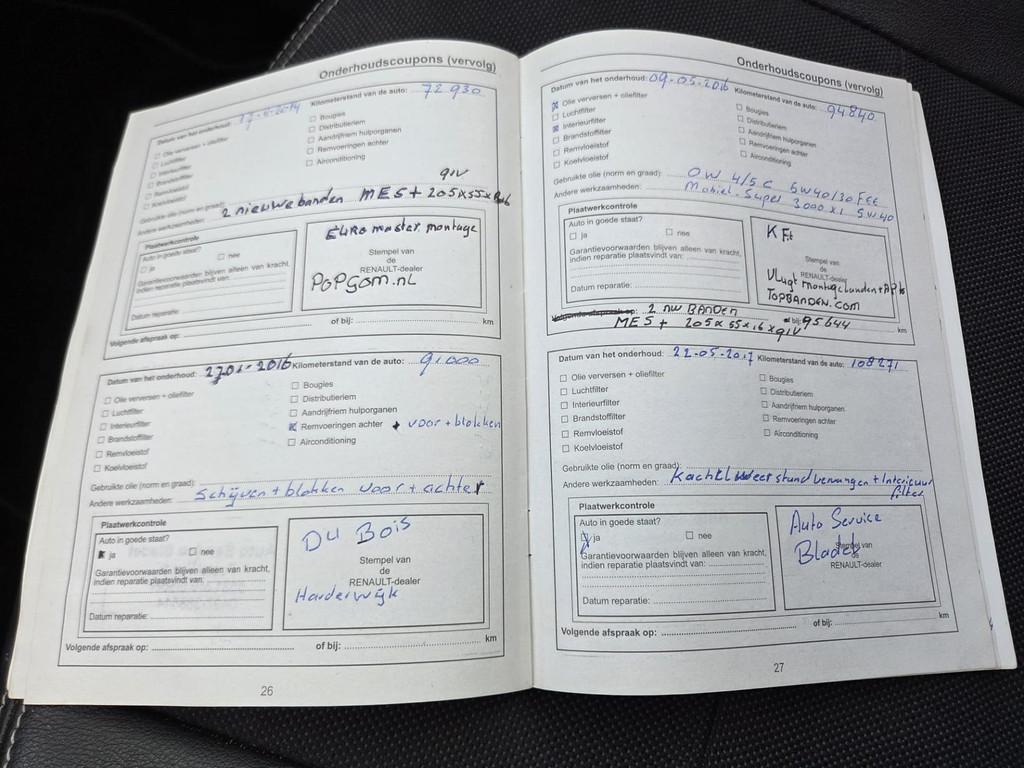 Onderhoudscoupons (vervolg)
Datum van het onderhoud: Kilometerstand van de auto: 72930
☐ Olie verversen + oliefilter
☐ Luchtfilter
☐ Interieurfilter
☐ Brandstoffilter
☐ Remvloeistof
☐ Koelvloeistof
☐ Bougies
☐ Distributieriem
☐ Aandrijfriem hulporganen
☐ Remvoeringen achter
☐ Airconditioning
Gebruikte olie (norm en graad):
91V
Andere werkzaamheden: 2 nieuwe banden MES + 205x55x
Plaatwerkcontrole
Auto in goede staat?
☐ ja ☐ nee
Garantievoorwaarden blijven alleen van kracht,
indien reparatie plaatsvindt van:
Datum reparatie:
EURO master montage
Stempel van
de
RENAULT-dealer
POPGOM.nL
Volgende afspraak op: of bij: km
Datum van het onderhoud: 2016 Kilometerstand van de auto: 91000
☐ Olie verversen + oliefilter
☐ Luchtfilter
☐ Interieurfilter
☐ Brandstoffilter
☐ Remvloeistof
☐ Koelvloeistof
☐ Bougies
☐ Distributieriem
☐ Aandrijfriem hulporganen
☒ Remvoeringen achter + voor + blokken
☐ Airconditioning
Gebruikte olie (norm en graad):
Andere werkzaamheden: Schijven + blokken voor + achter
Plaatwerkcontrole
Auto in goede staat?
☒ ja ☐ nee
Garantievoorwaarden blijven alleen van kracht,
indien reparatie plaatsvindt van:
Datum reparatie:
Du Bois
Stempel van
de
RENAULT-dealer
Harderwijk
Volgende afspraak op: of bij: km
26
Onderhoudscoupons (vervolg)
Datum van het onderhoud: 09-05-2016 Kilometerstand van de auto: 94840
☒ Olie verversen + oliefilter
☐ Luchtfilter
☒ Interieurfilter
☐ Brandstoffilter
☐ Remvloeistof
☐ Koelvloeistof
☐ Bougies
☐ Distributieriem
☐ Aandrijfriem hulporganen
☐ Remvoeringen achter
☐ Airconditioning
Gebruikte olie (norm en graad): OW 4/5 C 5W40/30 FEE
Andere werkzaamheden: Mobiel-Super 3000 x1 5W40
Plaatwerkcontrole
Auto in goede staat?
☐ ja ☐ nee
Garantievoorwaarden blijven alleen van kracht,
indien reparatie plaatsvindt van:
Datum reparatie:
K Fit
Stempel van
de
RENAULT-dealer
Vlugt montage banden +
TOPBANDEN.COM
Volgende afspraak op: 2 nw BANDEN of bij: 95644 km
MES + 205x55x16x91V
Datum van het onderhoud: 22-05-2017 Kilometerstand van de auto: 108271
☐ Olie verversen + oliefilter
☐ Luchtfilter
☐ Interieurfilter
☐ Brandstoffilter
☐ Remvloeistof
☐ Koelvloeistof
☐ Bougies
☐ Distributieriem
☐ Aandrijfriem hulporganen
☐ Remvoeringen achter
☐ Airconditioning
Gebruikte olie (norm en graad):
Andere werkzaamheden: Kachel weerstand vervangen + Interieur
filter
Plaatwerkcontrole
Auto in goede staat?
☑ ja ☐ nee
Garantievoorwaarden blijven alleen van kracht,
indien reparatie plaatsvindt van:
Datum reparatie:
Auto Service
Bladel
Stempel van
de
RENAULT-dealer
Volgende afspraak op: of bij: km
27